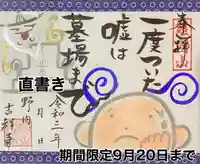 奉拝
一度ついた
嘘は
墓場まで
令和三年
月 日
野内
吉祥寺
直書き
期間限定9月20日まで